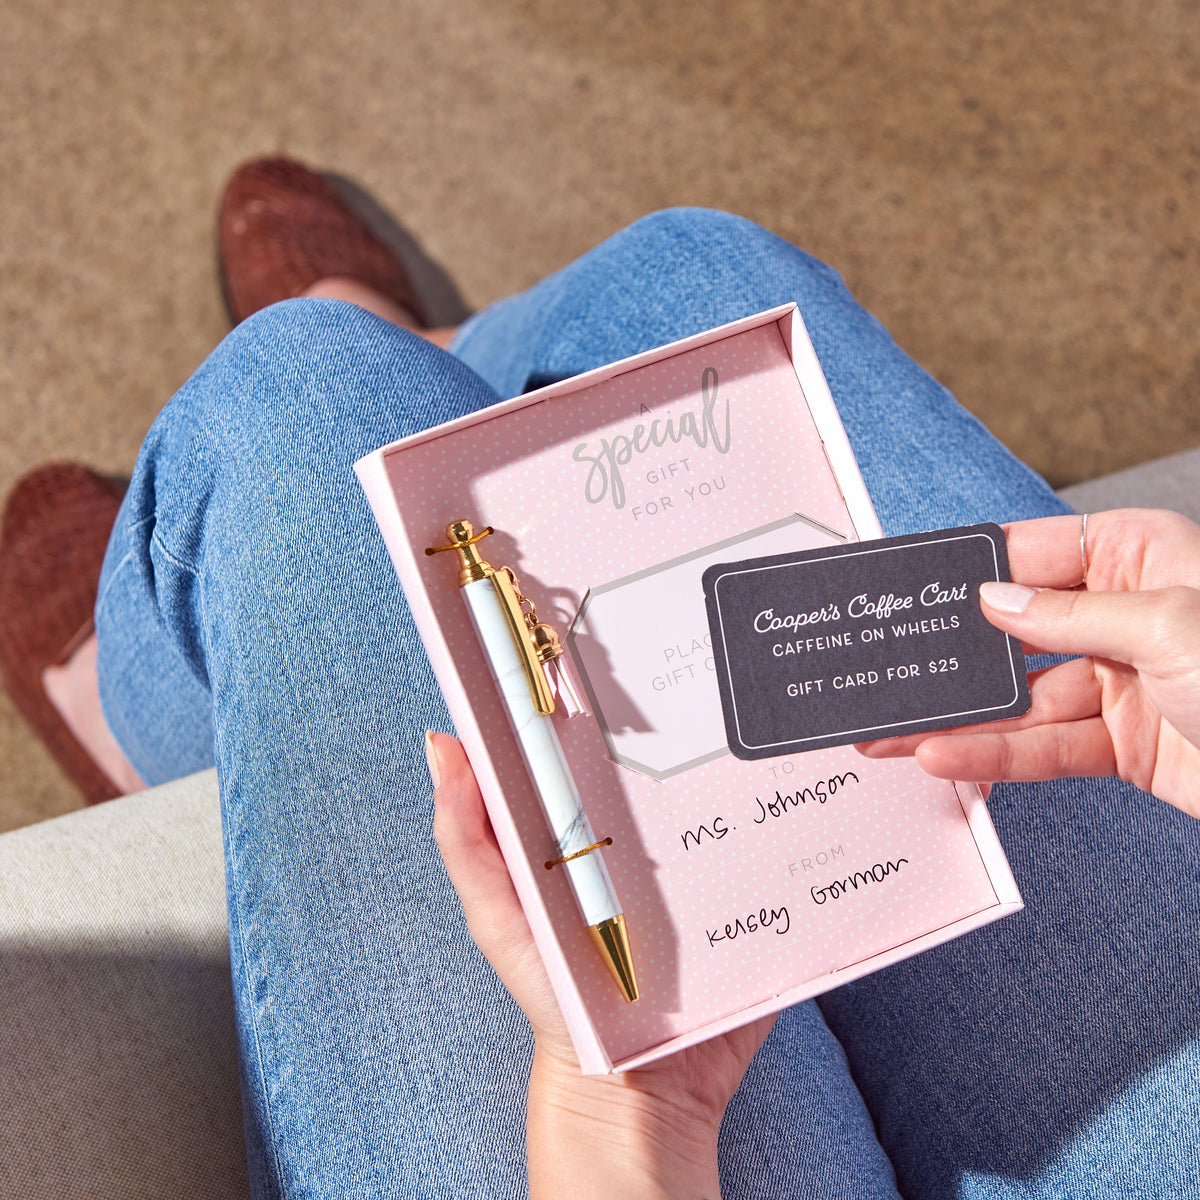 A
special
GIFT
FOR YOU
PLAC
GIFT C
Cooper's Coffee Cart
CAFFEINE ON WHEELS
GIFT CARD FOR $25
TO
Ms. Johnson
FROM
Kersey Gorman